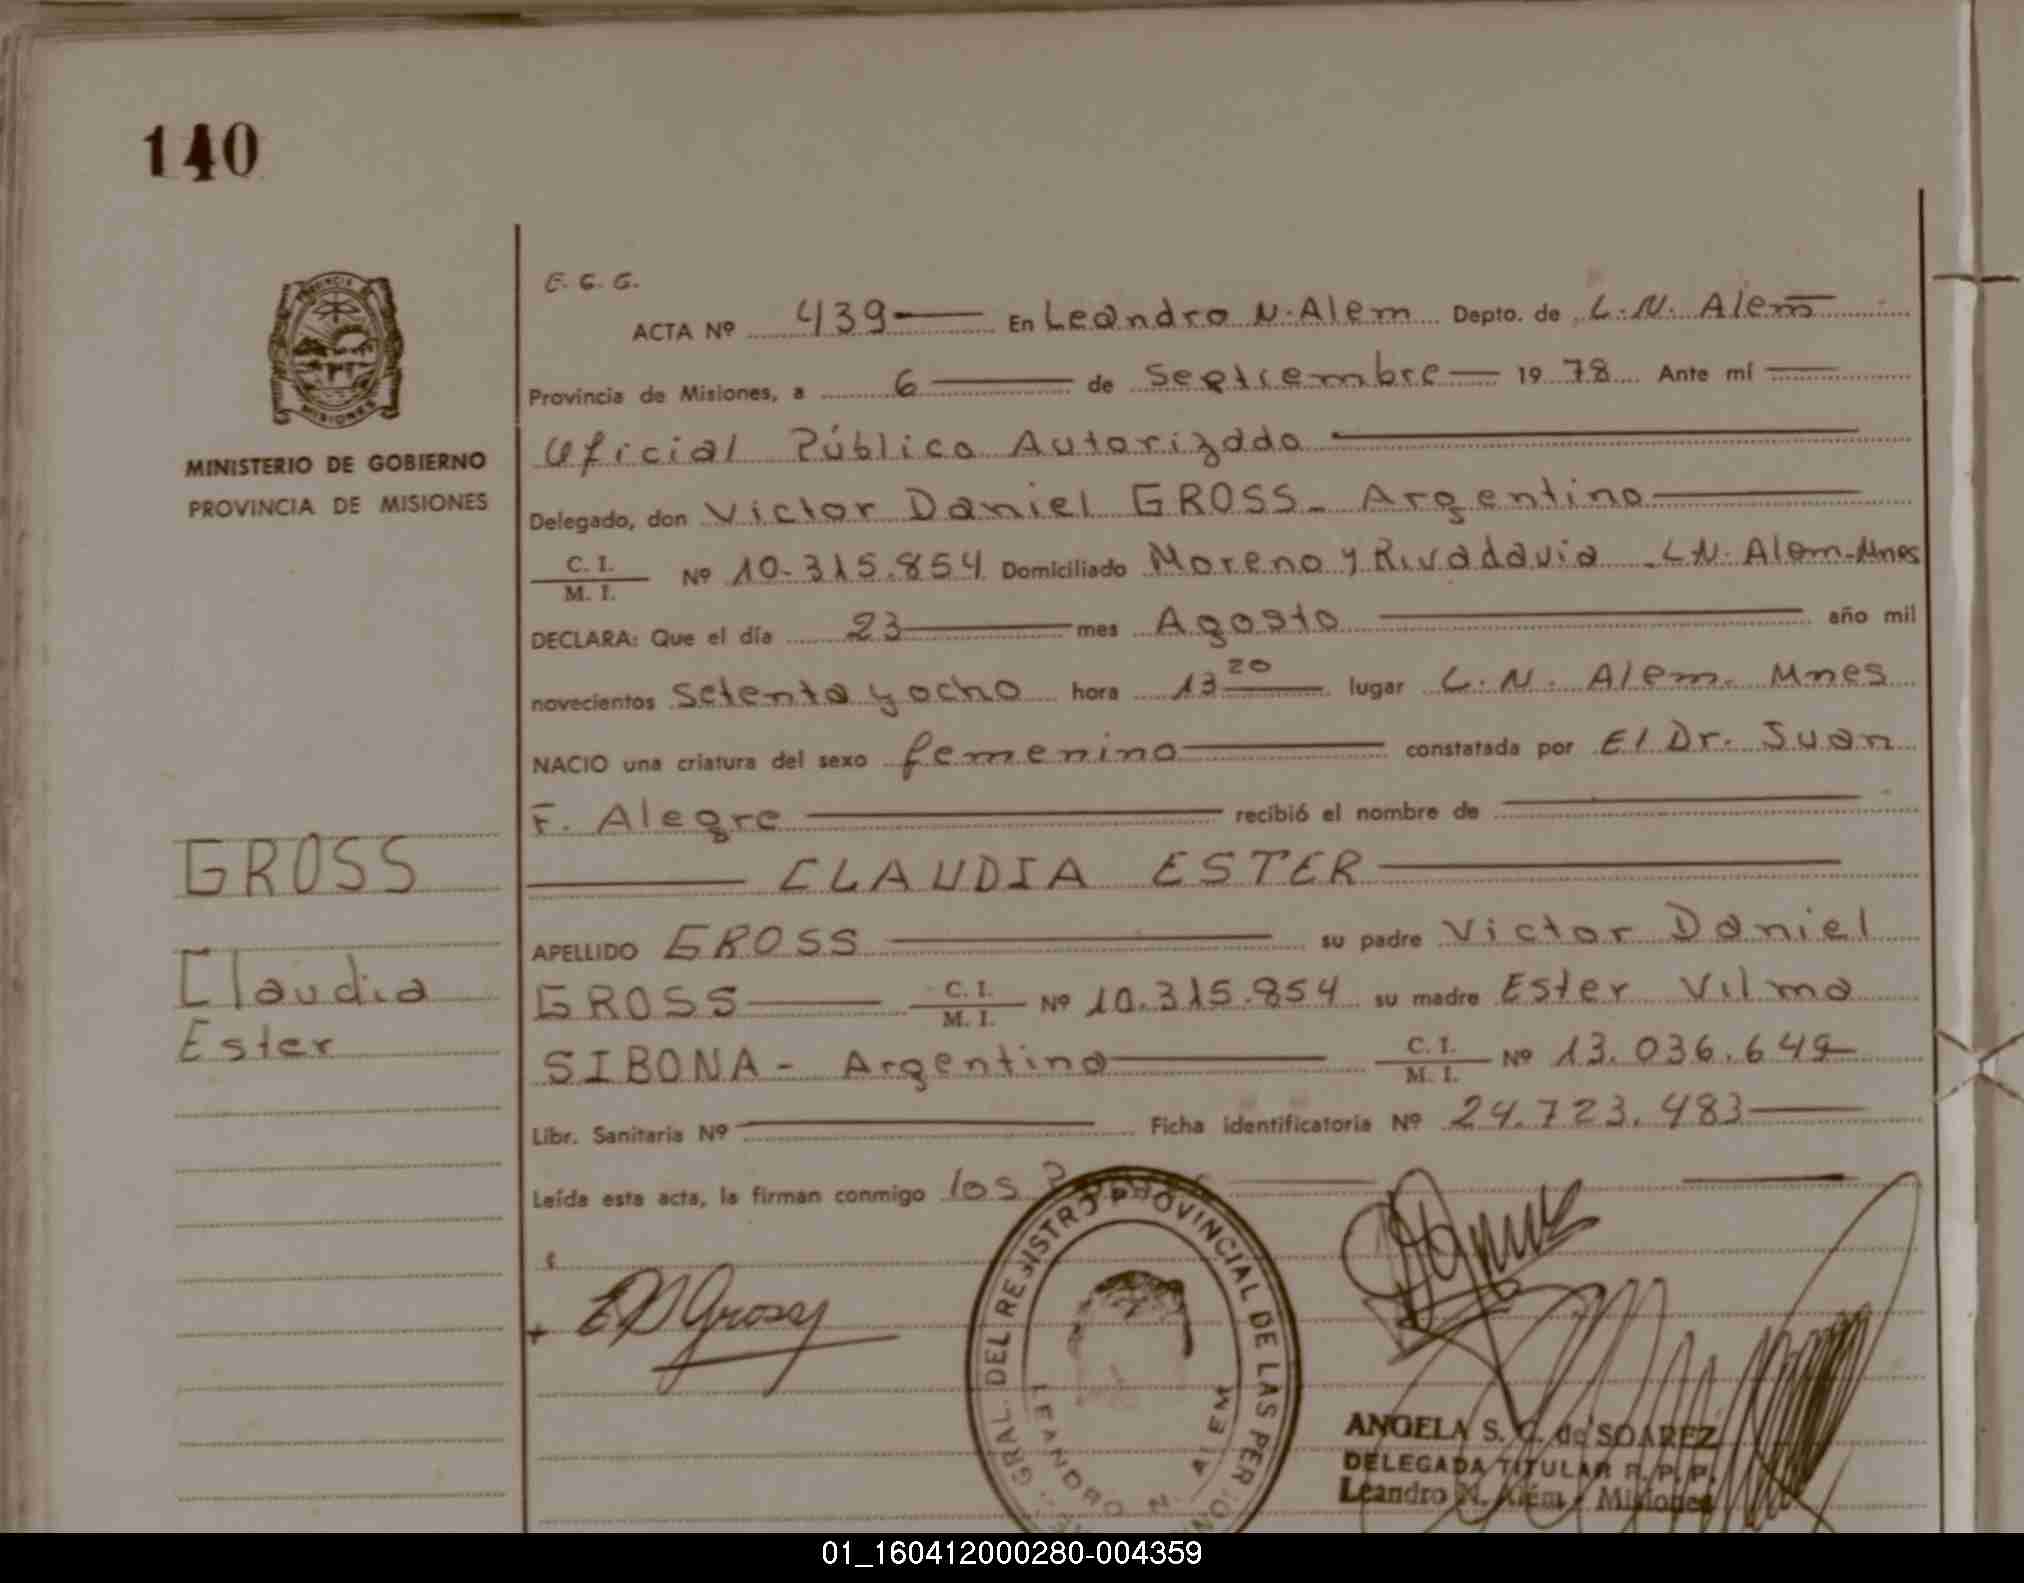 140
E. G. G.
ACTA Nº 439 En Leandro N. Alem Depto. de L. N. Alem
Provincia de Misiones, a 6 de Septiembre 1978 Ante mí
Oficial Público Autorizado
MINISTERIO DE GOBIERNO
PROVINCIA DE MISIONES
MISIONES
Delegado, don Victor Daniel GROSS - Argentino
C. I.
M. I. Nº 10.315.854 Domiciliado Moreno y Rivadavia - L N. Alem - Mnes
DECLARA: Que el día 23 mes Agosto año mil
novecientos setenta y ocho hora 13 20 lugar L. N. Alem. Mnes
NACIO una criatura del sexo femenino constatada por El Dr. Juan
F. Alegre recibió el nombre de
CLAUDIA ESTER
GROSS
Claudia
Ester
APELLIDO GROSS su padre Victor Daniel
GROSS C. I. M. I. Nº 10.315.854 su madre Ester Vilma
SIBONA - Argentina C. I. M. I. Nº 13.036.649
Libr. Sanitaria Nº Ficha identificatoria Nº 24.723.483
Leída esta acta, la firman conmigo los
GRAL. DEL REGISTRO PROVINCIAL DE LAS PER
LEANDRO N. ALEM
ANGELA S. C. de SOAREZ
DELEGADA TITULAR R. P. P.
Leandro N. Além - Misiones
01_160412000280-004359